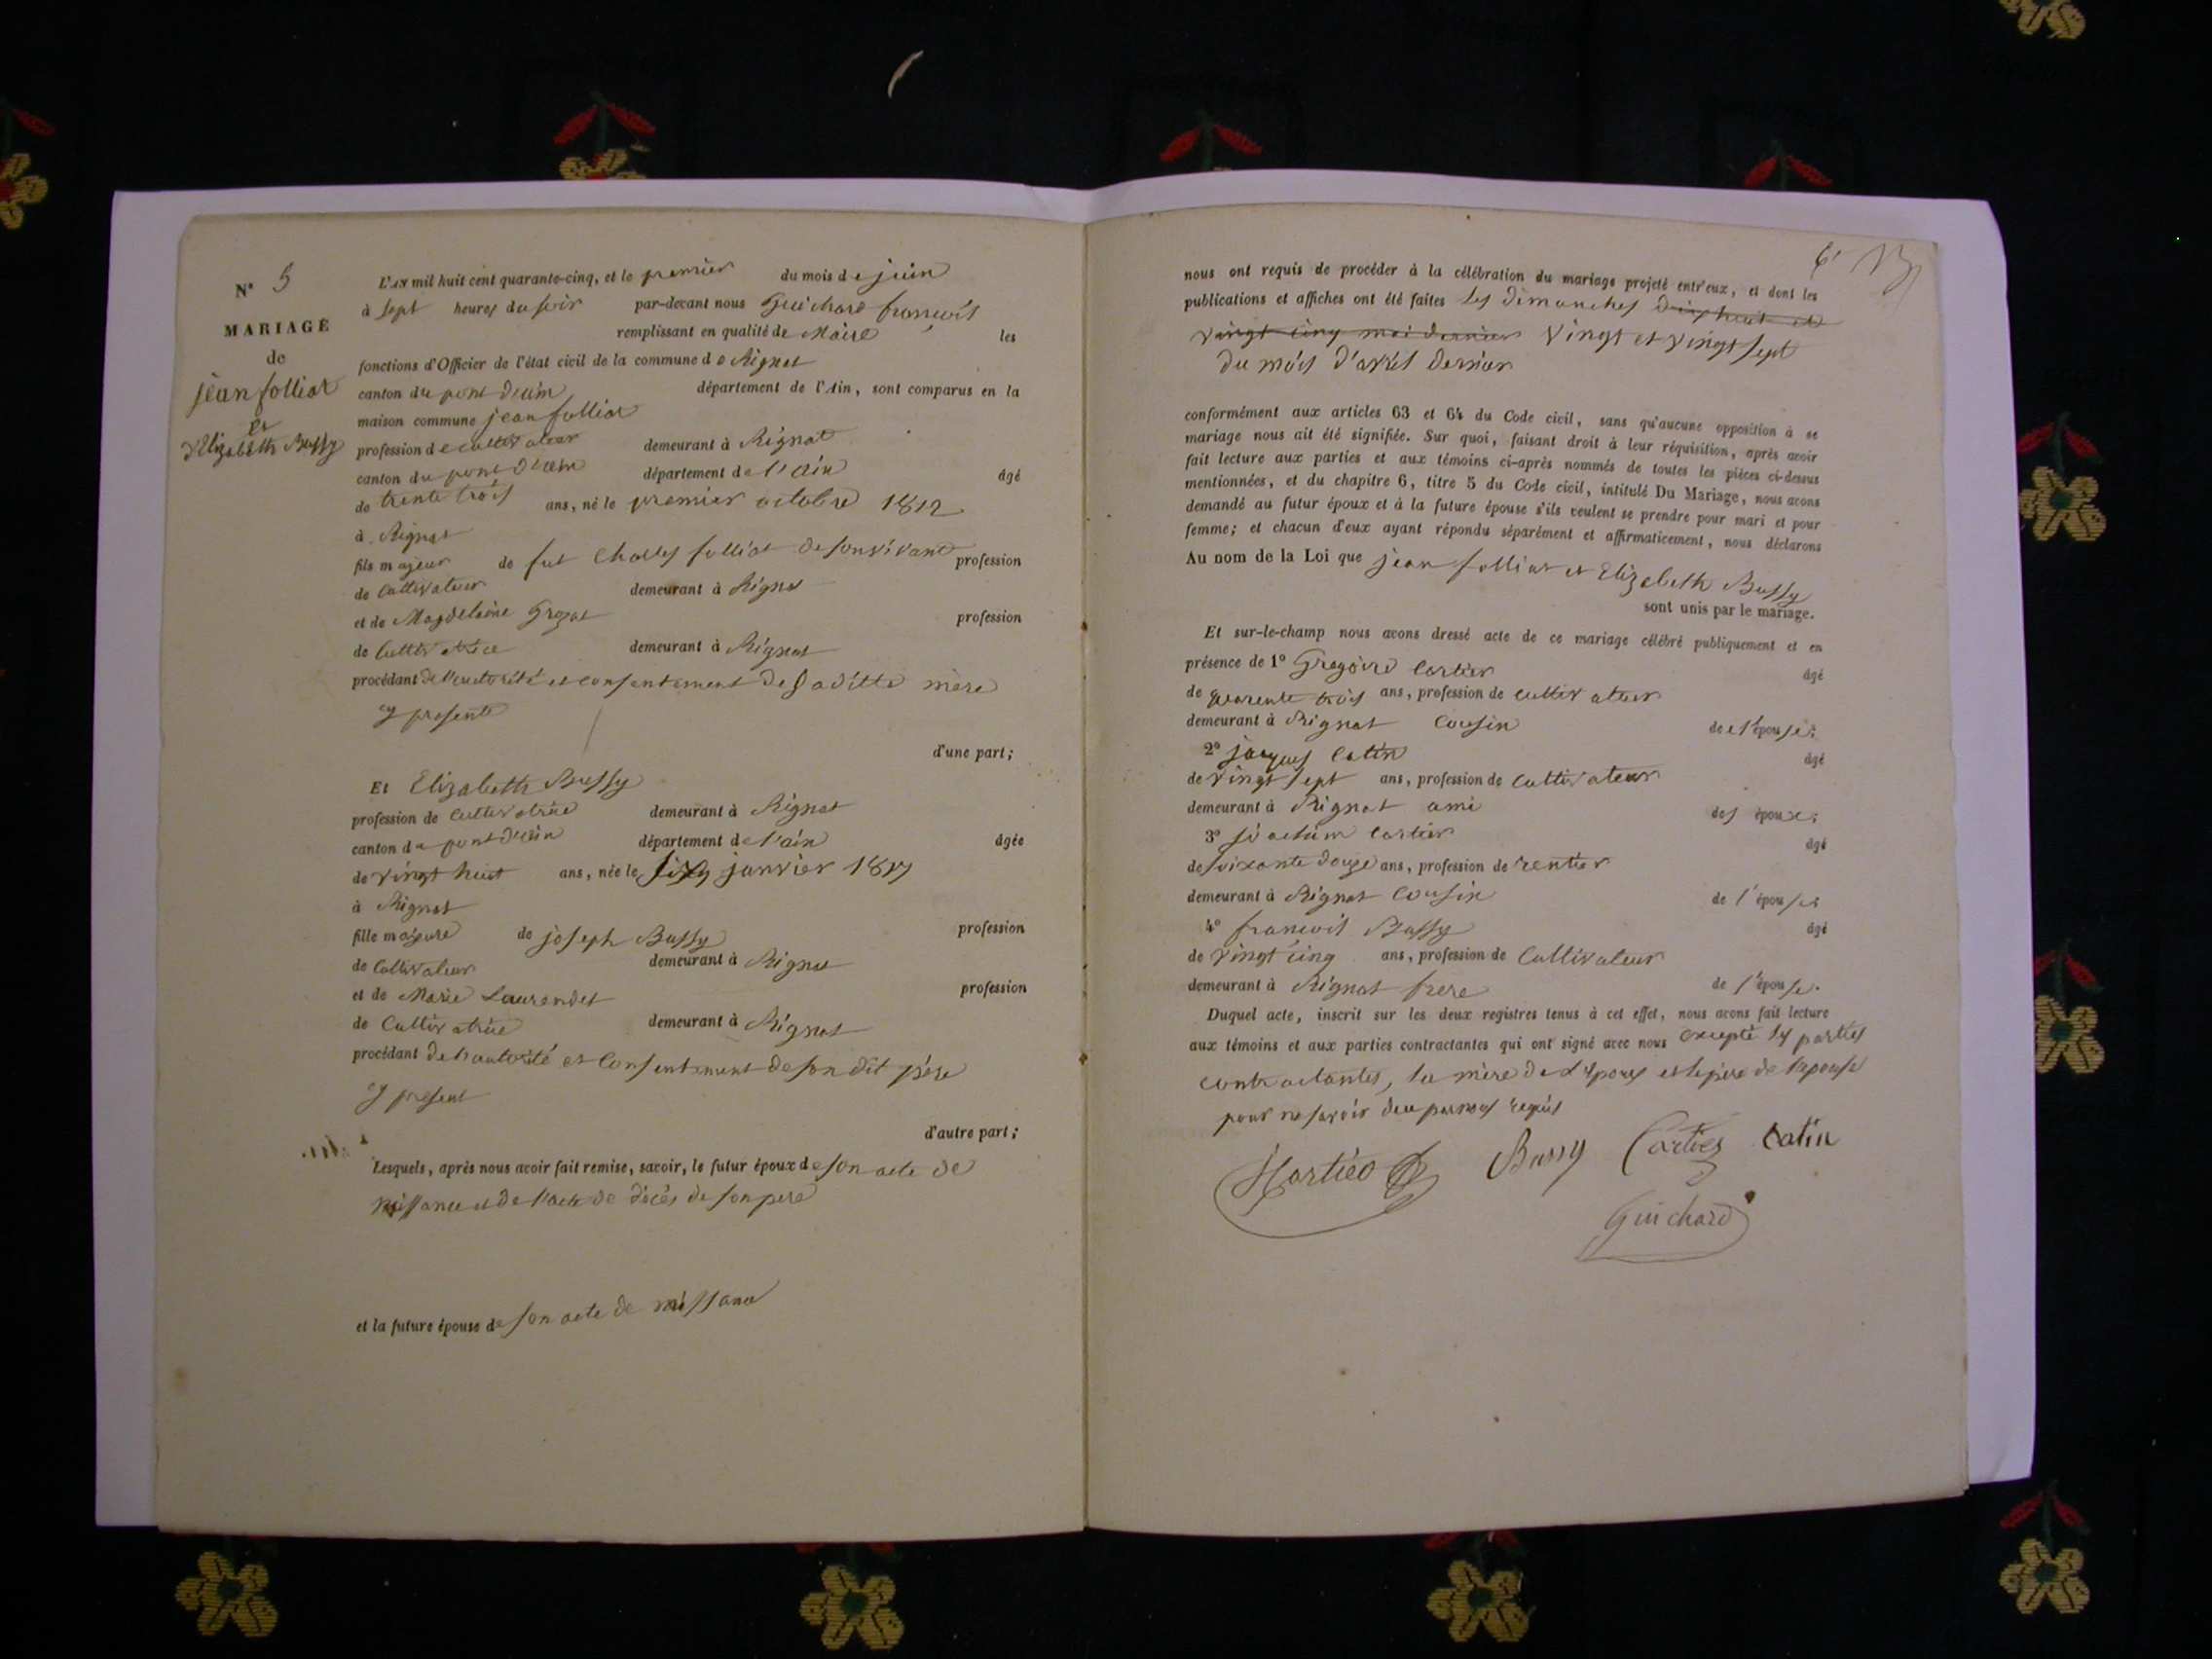 N° 5
MARIAGE
de
jean folliat
et
d'Elizabeth Bussy
L'AN mil huit cent quarante-cinq, et le premier du mois de juin
à sept heures du soir par-devant nous Guichard francois
remplissant en qualité de Maire les
fonctions d'Officier de l'état civil de la commune de Rignat
canton du pont d'ain département de l'Ain, sont comparus en la
maison commune jean folliat
profession de cultivateur demeurant à Rignat
canton du pont d'ain département de l'ain âgé
de trente trois ans, né le premier octobre 1812
à Rignat
fils majeur de fut Charles folliat de son vivant profession
de Cultivateur demeurant à Rignat
et de Magdelaine Grozat profession
de Cultivatrice demeurant à Rignat
procédant de l'autorité et consentement de saditte mère
y presente
d'une part;
Et Elizabeth Bussy
profession de cultivatrice demeurant à Rignat
canton de pont d'ain département de l'ain âgée
de vingt huit ans, née le six janvier 1817
à Rignat
fille majeure de joseph Bussy profession
de Cultivateur demeurant à Rignat
et de Marie Laurendet profession
de Cultivatrice demeurant à Rignat
procédant de l'autorité et Consentement de son dit père
y present
d'autre part;
Lesquels, après nous avoir fait remise, savoir, le futur époux de son acte de
naissance et de l'acte de décès de son pere
et la future épouse de son acte de naissance
6e
nous ont requis de procéder à la célébration du mariage projeté entr'eux, et dont les
publications et affiches ont été faites les dimanches dix huit et
vingt cinq mai dernier vingt et vingt sept
du mois d'avril dernier
conformément aux articles 63 et 64 du Code civil, sans qu'aucune opposition à se
mariage nous ait été signifiée. Sur quoi, faisant droit à leur réquisition, après avoir
fait lecture aux parties et aux témoins ci-après nommés de toutes les pièces ci-dessus
mentionnées, et du chapitre 6, titre 5 du Code civil, intitulé Du Mariage, nous avons
demandé au futur époux et à la future épouse s'ils veulent se prendre pour mari et pour
femme; et chacun d'eux ayant répondu séparément et affirmativement, nous déclarons
Au nom de la Loi que jean folliat et Elizabeth Bussy
sont unis par le mariage.
Et sur-le-champ nous avons dressé acte de ce mariage célébré publiquement et en
présence de 1° Gregoire Cartier âgé
de quarente trois ans, profession de cultivateur
demeurant à Rignat Cousin de l'épouse;
2° jacques Catin âgé
de vingt sept ans, profession de Cultivateur
demeurant à Rignat ami des époux;
3° joachim Cartier âgé
de soixante douze ans, profession de rentier
demeurant à Rignat Cousin de l'épouse;
4° francois Bussy âgé
de vingt cinq ans, profession de Cultivateur
demeurant à Rignat frere de l'épouse.
Duquel acte, inscrit sur les deux registres tenus à cet effet, nous avons fait lecture
aux témoins et aux parties contractantes qui ont signé avec nous excepté les parties
contractantes, la mère de l'epoux et le père de l'epouse
pour ne savoir de ce requis
Bussy Cartier Catin
Guichard